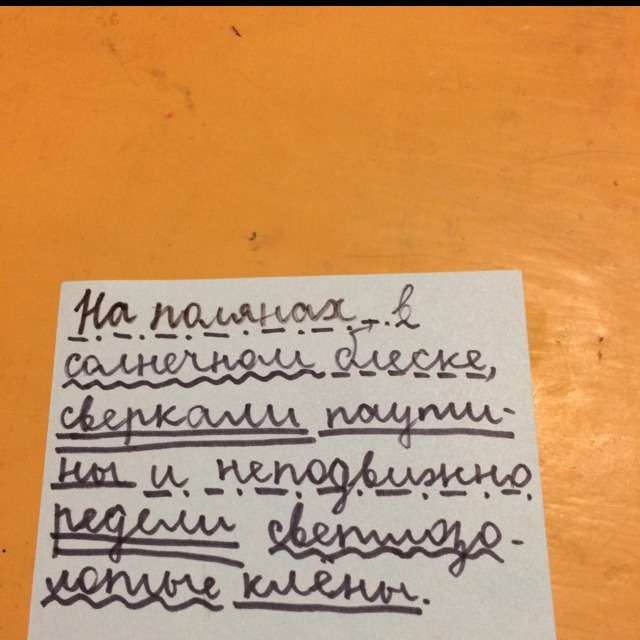 На полянах в
солнечном блеске,
сверкали паути-
ны и неподвижно
редели светлозо-
лотые клёны.